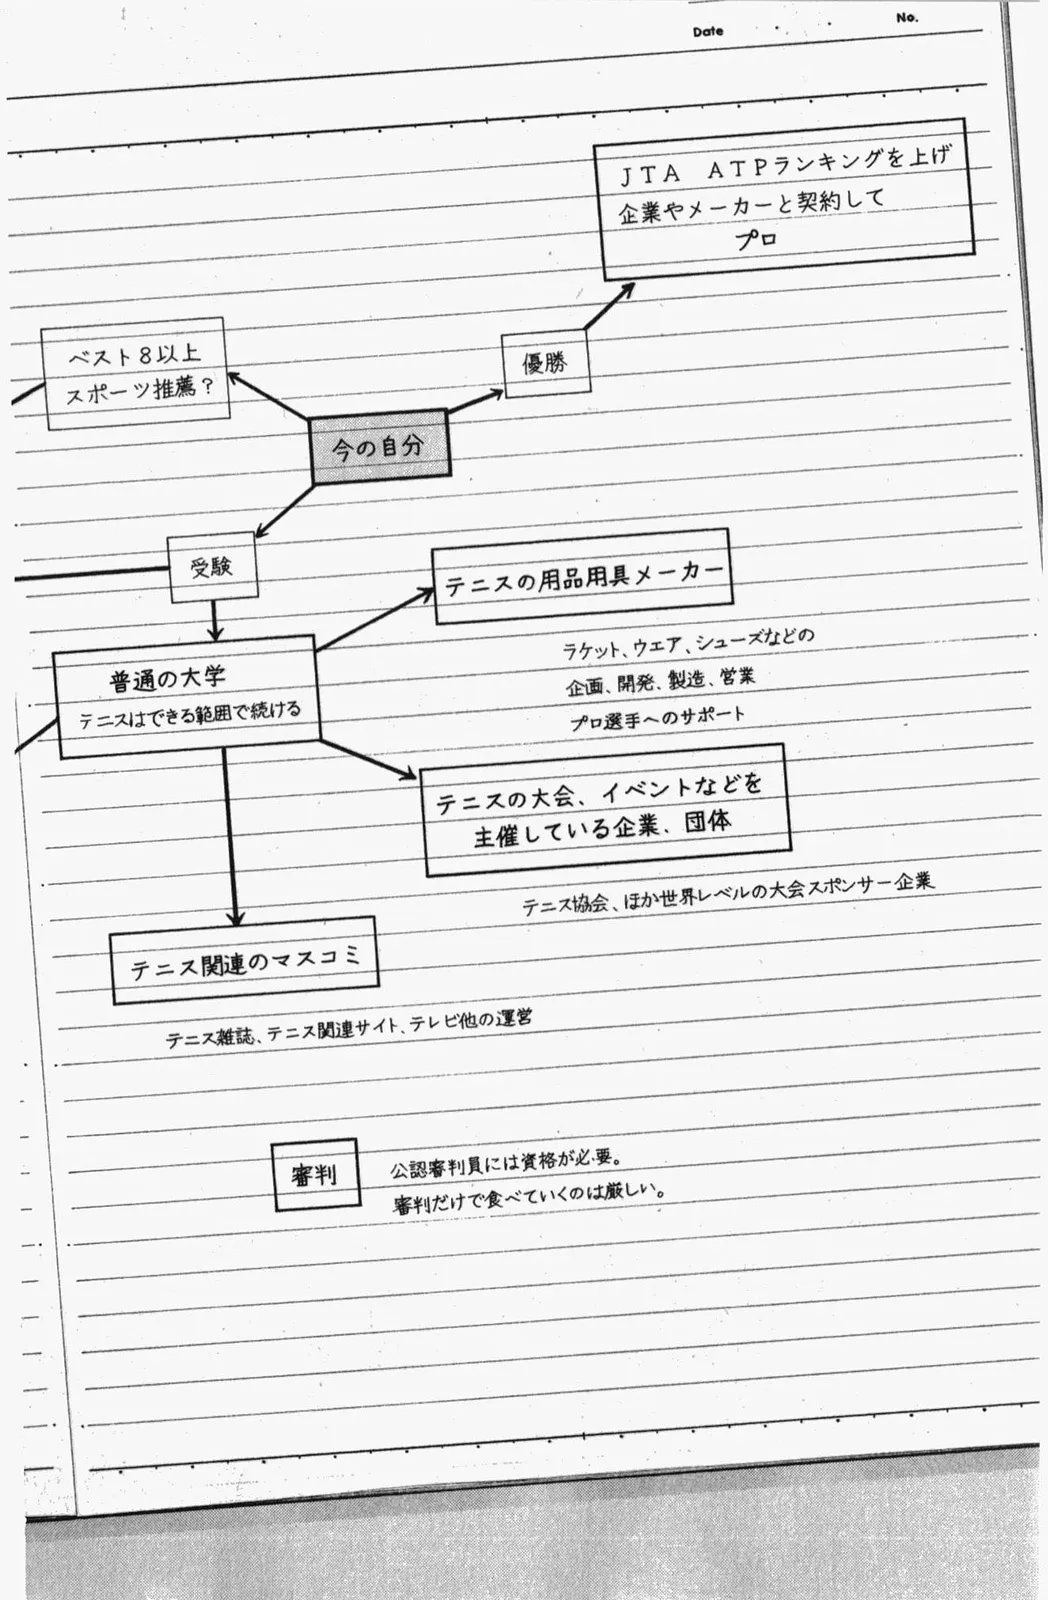 Date
No.
JTA ATPランキングを上げ
企業やメーカーと契約して
プロ
ベスト8以上
スポーツ推薦？
優勝
今の自分
受験
テニスの用品用具メーカー
ラケット、ウエア、シューズなどの
企画、開発、製造、営業
プロ選手へのサポート
普通の大学
テニスはできる範囲で続ける
テニスの大会、イベントなどを
主催している企業、団体
テニス協会、ほか世界レベルの大会スポンサー企業
テニス関連のマスコミ
テニス雑誌、テニス関連サイト、テレビ他の運営
審判
公認審判員には資格が必要。
審判だけで食べていくのは厳しい。